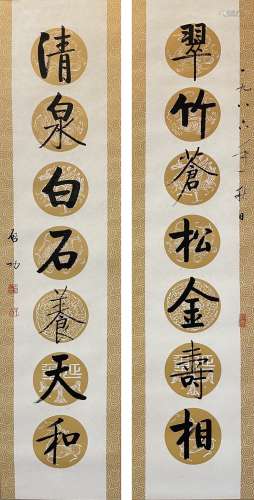 翠竹蒼松金壽相
一九八六年秋日
清泉白石養天和
啟功